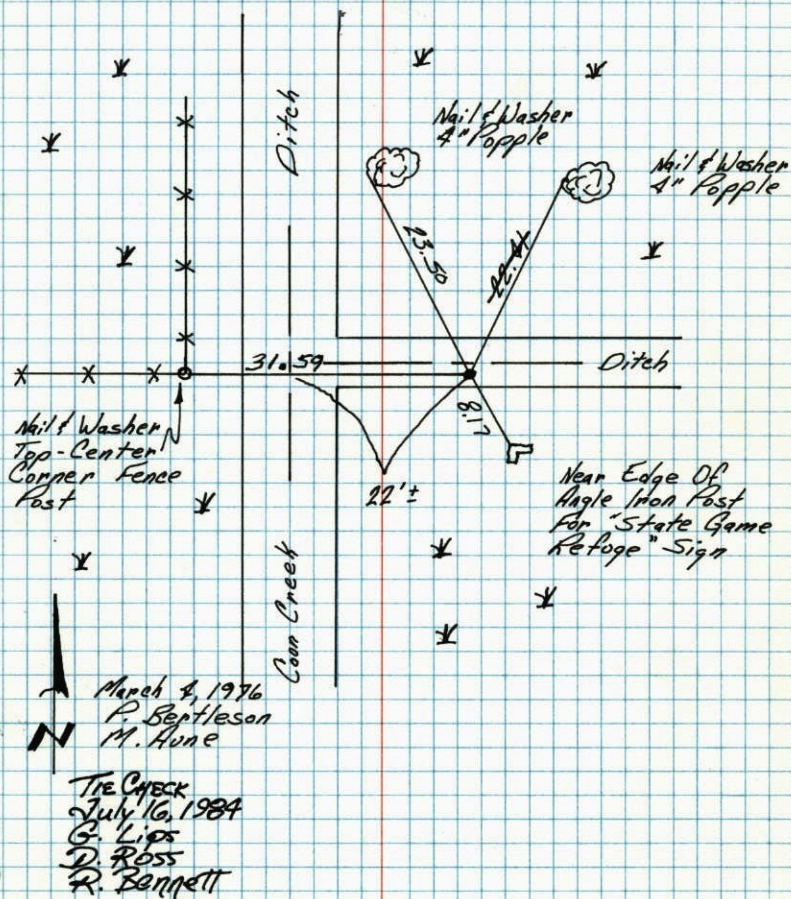 Ditch
Nail & Washer
4" Popple
Nail & Washer
4" Popple
23.50
31.59
Ditch
8.17
Nail & Washer
Top-Center
Corner Fence
Post
22'±
Near Edge Of
Angle Iron Post
For "State Game
Refuge" Sign
Coon Creek
N
March 4, 1976
P. Bertleson
M. Aune
TIE CHECK
July 16, 1984
G. Lips
D. Ross
R. Bennett